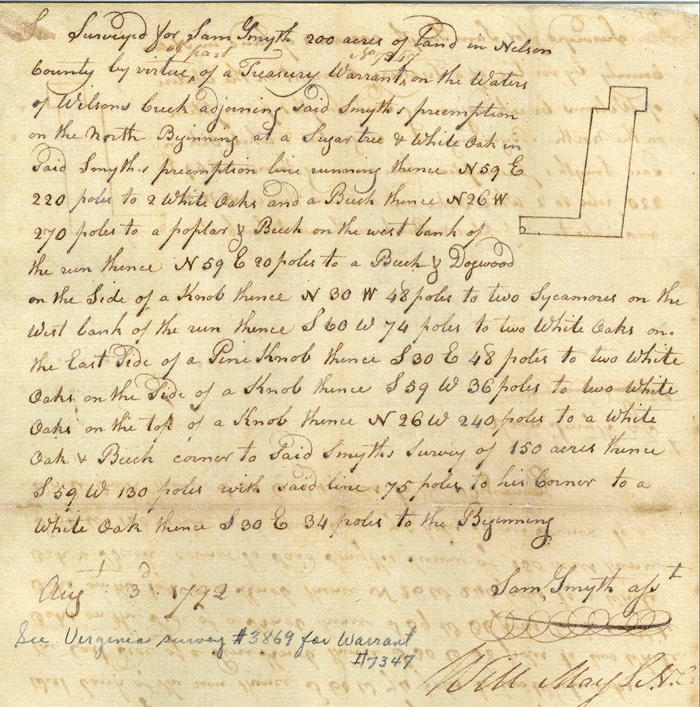 Surveyed for Sam Smyth 200 acres of Land in Nelson
of part No 7347
County by virtue, of a Treasury Warrant, on the Waters
of Wilsons Creek adjoining said Smyths preemption
on the North Beginning at a Sugartree & White Oak in
said Smyths preemption line running thence N 59 E
220 poles to 2 White Oaks and a Beech thence N 26 W
270 poles to a poplar & Beech on the west bank of
the run thence N 59 E 20 poles to a Beech & Dogwood
on the Side of a Knob thence N 30 W 48 poles to two Sycamores on the
West bank of the run thence S 60 W 74 poles to two White Oaks on
the East Side of a Pine Knob thence S 30 E 48 poles to two White
Oaks on the Side of a Knob thence S 59 W 36 poles to two White
Oaks on the top of a Knob thence N 26 W 240 poles to a White
Oak & Beech corner to said Smyths Survey of 150 acres thence
S 59 W 130 poles with said line 75 poles to his Corner to a
White Oak thence S 30 E 34 poles to the Beginning
Augt 3d 1792
Sam Smyth asst
See Virginia survey #3869 for Warrant
#7347
Will May S. N. C.